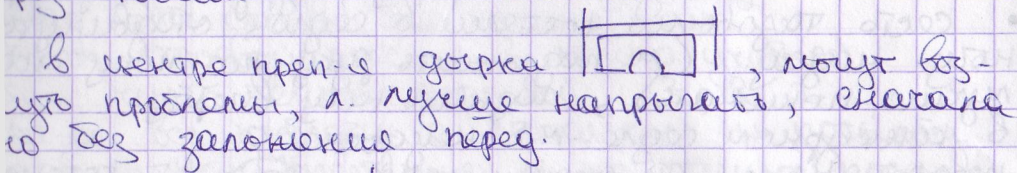 в центре преп-я дырка , могут воз-
уть проблемы, л. лучше напрыгать, сначала
ю без заложения перед.